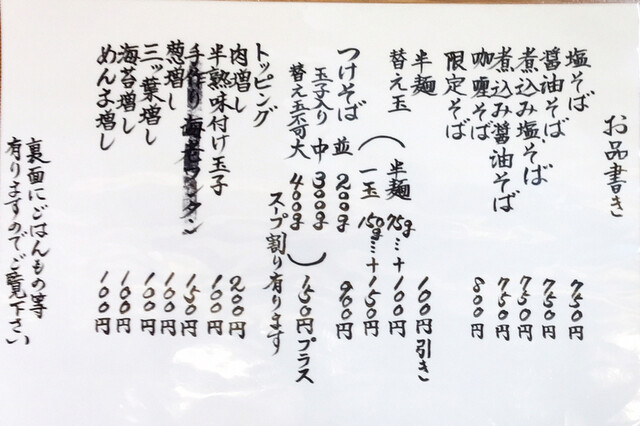 お品書き
塩そば 750円
醤油そば 750円
煮込み塩そば 750円
煮込み醤油そば 750円
咖喱そば 800円
限定そば
半麺 100円引き
替え玉（半麺 75g…+100円
一玉 150g…+150円
つけそば 並 200g 900円
玉子入り 中 300g
替え玉不可 大 400g）150円プラス
スープ割り有ります
トッピング
肉増し 200円
半熟味付け玉子 100円
手作り海老ワンタン 150円
葱増し 100円
三ッ葉増し 100円
海苔増し 100円
めんま増し 100円
裏面にごはんもの等
有りますのでご覧下さい